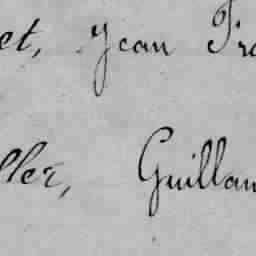 et, Jean Fra
ller, Guillau